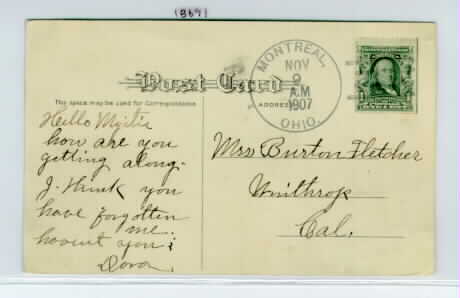 (869)
Post Card
This space may be used for Correspondence
ADDRESS
MONTREAL,
NOV
2
A.M
1907
OHIO.
Hello
how are you
getting along.
I think you
have forgotten
me.
havent you?
Dova.
Mrs Burton Fletcher
Winthrop
Cal.